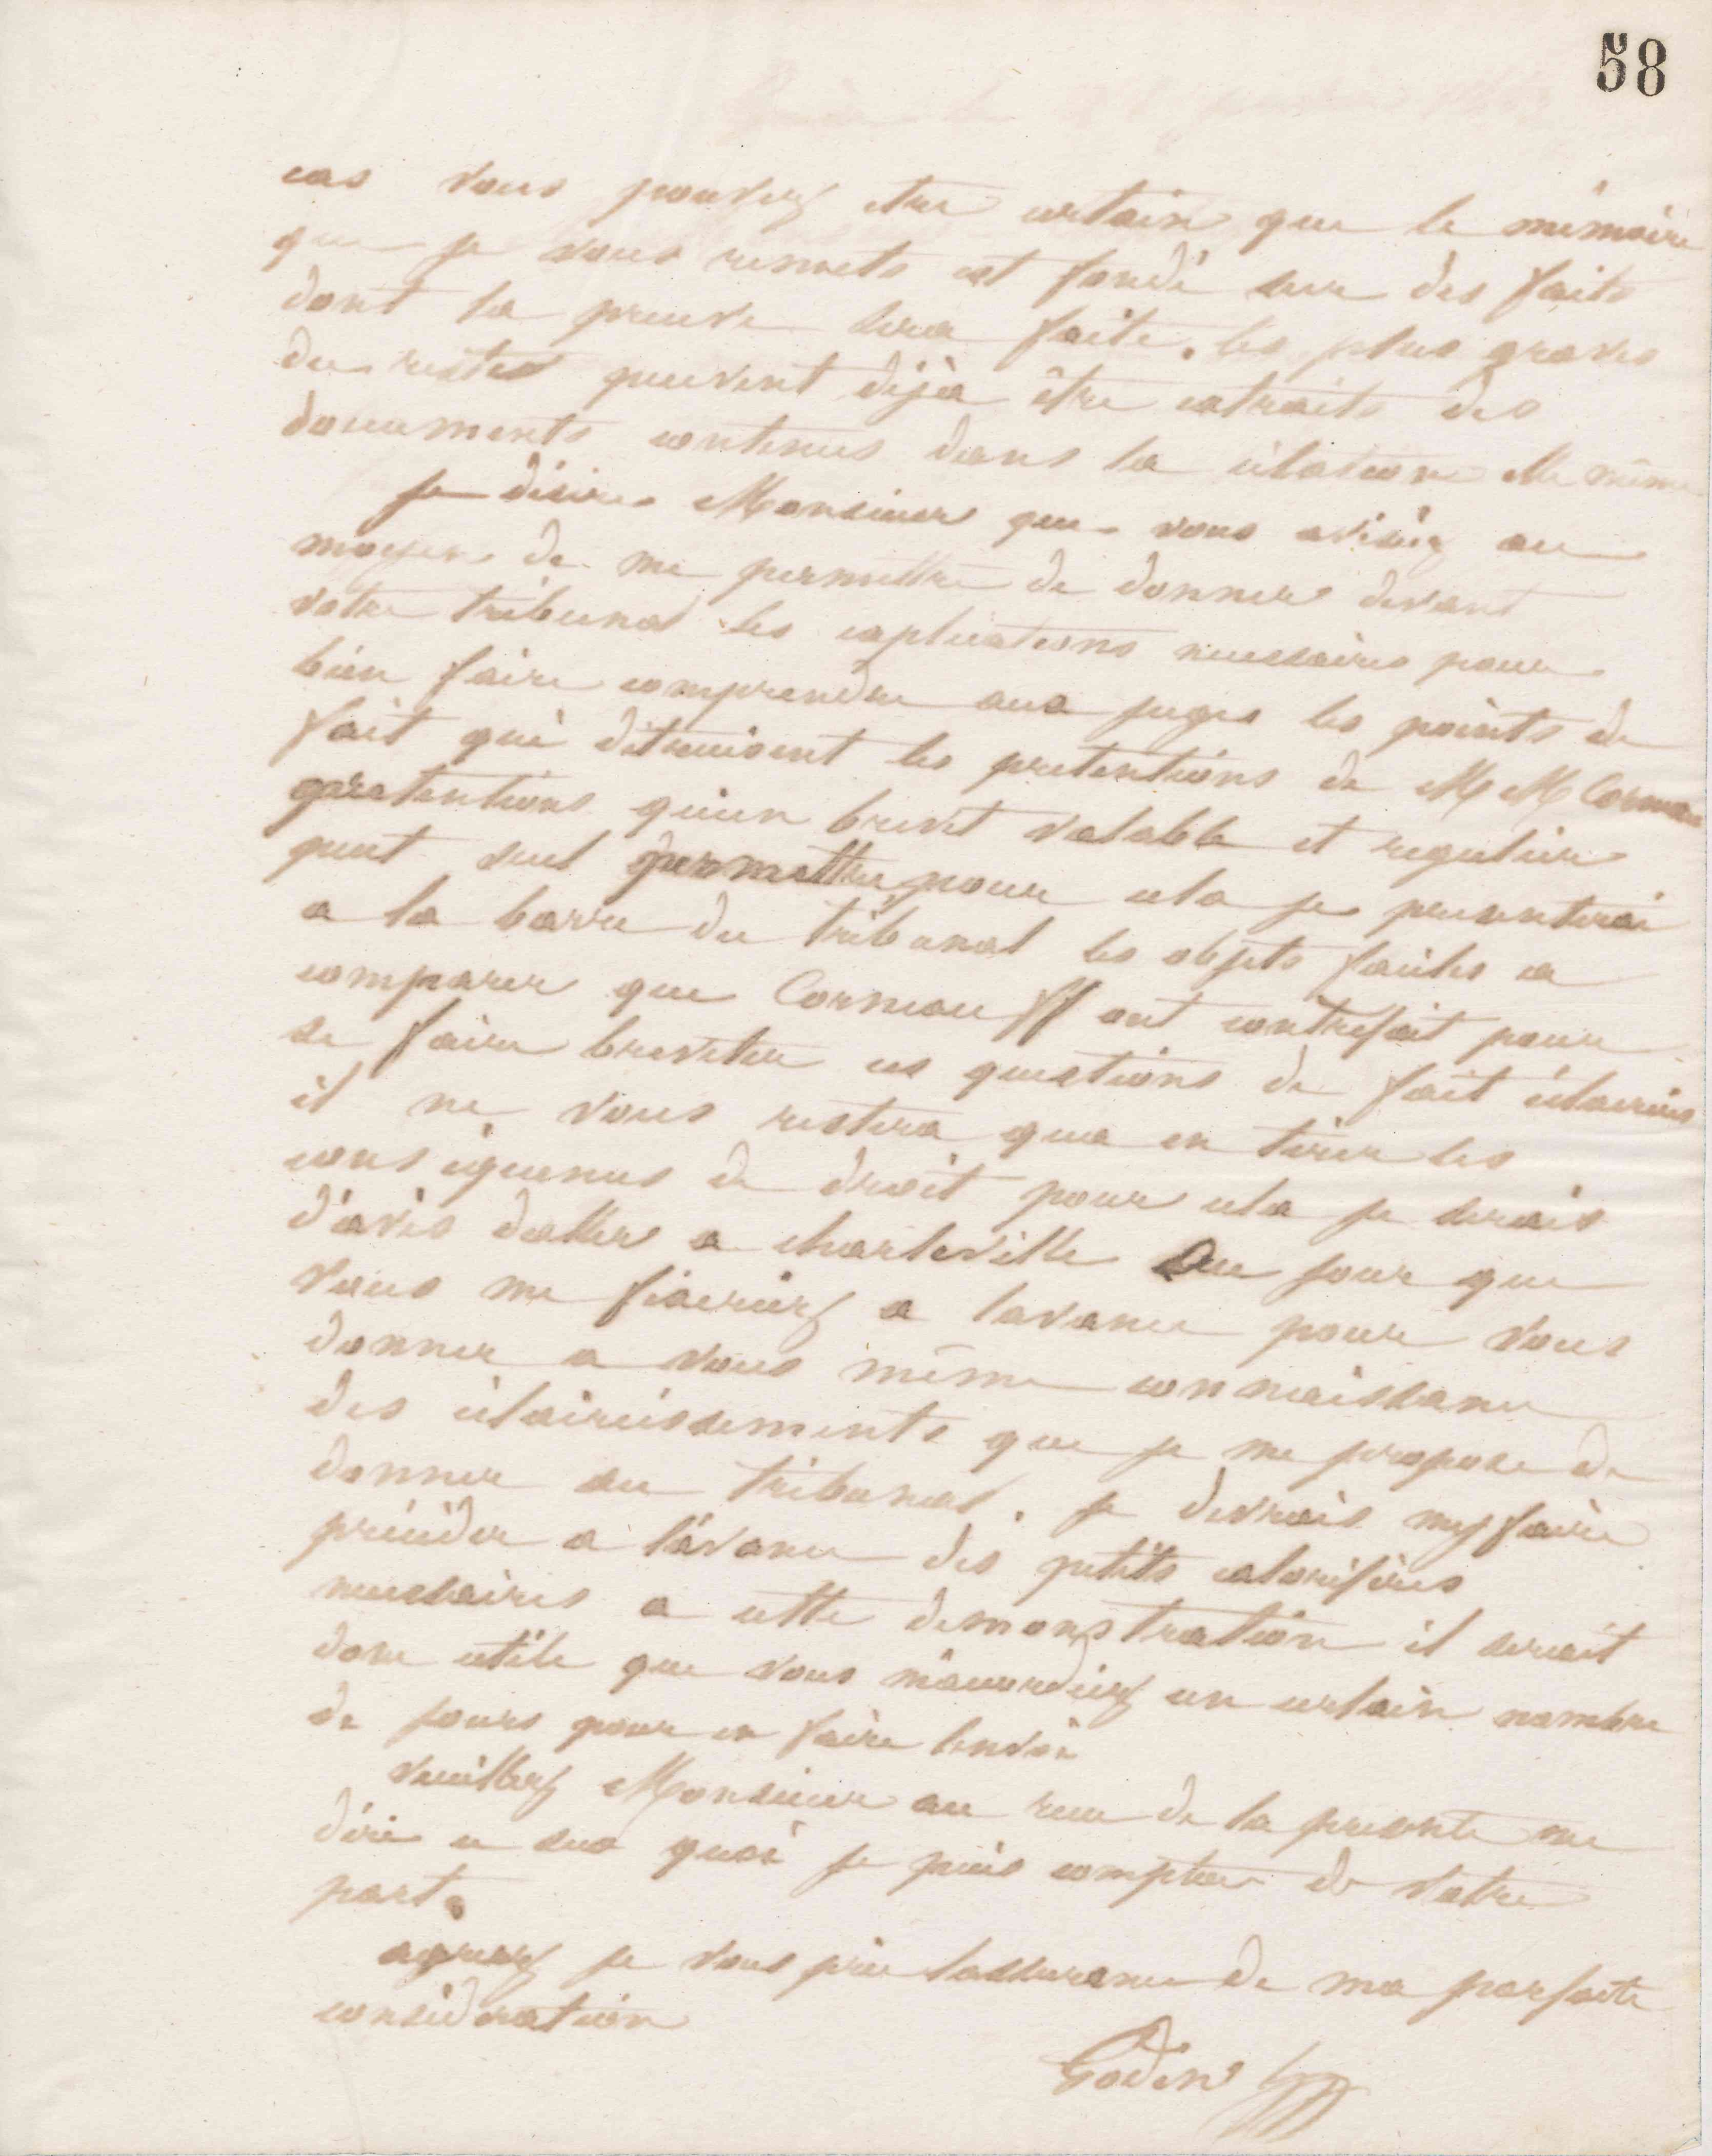 58
cas vous pouvez etre certain que le mémoire
que je vous remets est fondé sur des faits
dont la preuve sera faite. les plus graves
du reste peuvent déjà être extraits des
documents contenus dans la citation elle même
je désire Monsieur que vous avisiez au
moyen de me permettre de donner devant
votre tribunal les explications necessaires pour
bien faire comprendre aux juges les points de
fait qui détruisent les pretentions de M M Corneau
pretentions qu'un brevet valable et regulier
peut seul permettre, pour cela je presenterai
a la barre du tribunal les objets faciles a
comparer que Corneau ff ont contrefait pour
se faire breveter ces questions de fait éclaircies
il ne vous restera qua en tirer les
conséquences de droit pour cela je serais
d'avis daller a charleville Au jour que
vous me fixeriez a lavance pour vous
donner a vous même connaissance
des éclaircissements que je me propose de
donner au tribunal. je devrais my faire
précéder a l'avance des petits calorifères
necessaires a cette demonstration il serait
donc utile que vous m'accordiez un certain nombre
de jours pour en faire lenvoi
veuillez Monsieur au recu de la presente me
dire a sur quoi je puis compter de votre
part.
agreez je vous prie lassurance de ma parfaite
consideration
Godin